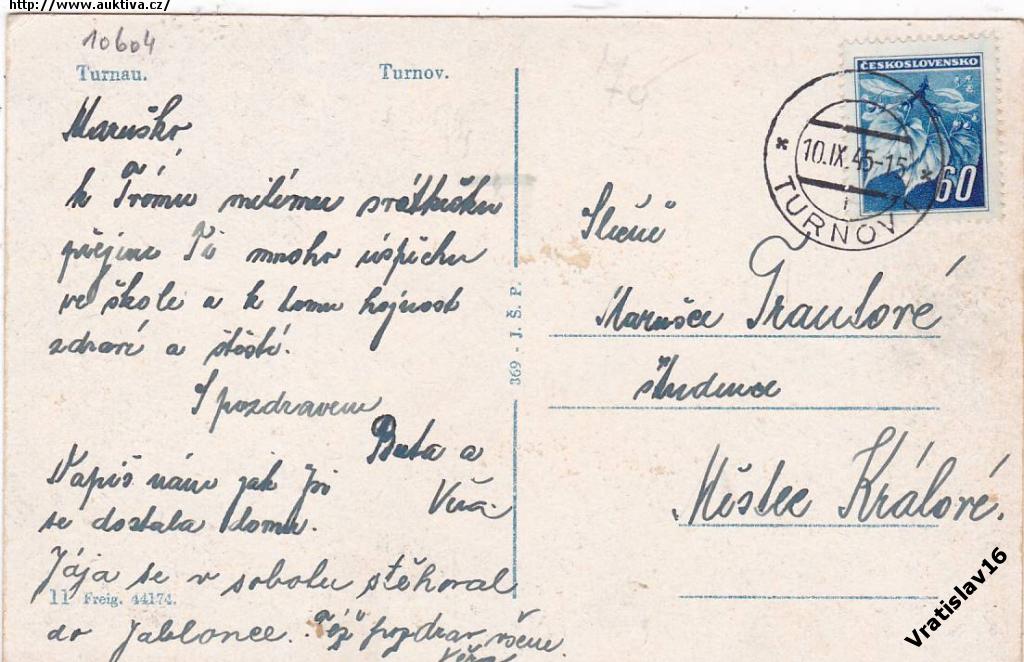 http://www.auktiva.cz/
10604
Turnau. Turnov.
Maruško,
k Tvému milému svátečku
přejeme Ti mnoho úspěchu
ve škole a k tomu hojnost
zdraví a štěstí.
S pozdravem
a
Věra.
Napiš nám jak jsi
se dostala domu.
Jája se v sobotu stěhoval
11 Freig. 44174.
do Jablonce. Též pozdrav všem
Věra
369 - J. Š. P.
ČESKOSLOVENSKO
60
10.IX.45-15
TURNOV
1
Slečně
Marušce Trautové
studence
Městec Králové.
Vratislav16